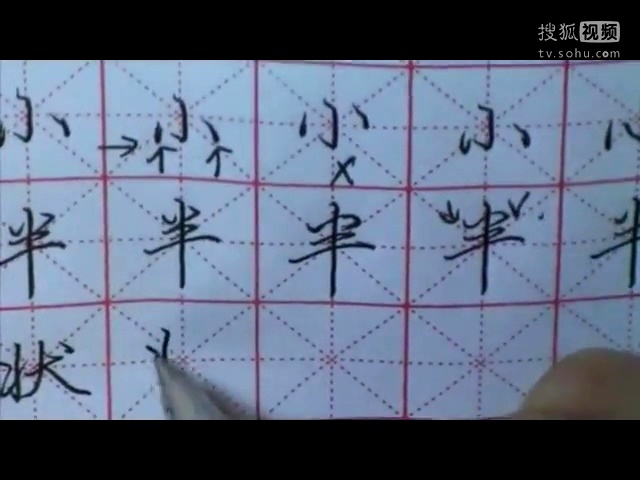 搜狐视频
tv.sohu.com
小 小 小 小
半 半 半 半 半
状